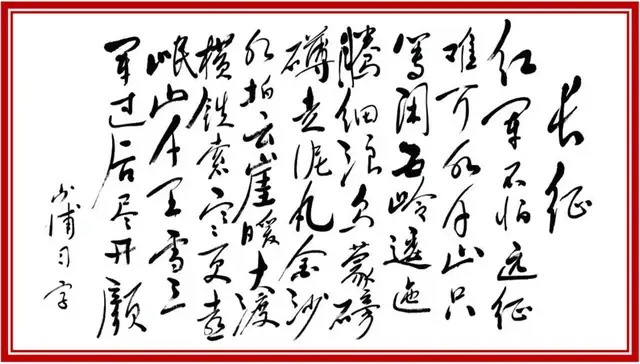 长征
红军不怕远征
难万水千山只
等闲五岭逶迤
腾细浪乌蒙磅
礴走泥丸金沙
水拍云崖暖大渡
横铁索寒更喜
岷山千里雪三
军过后尽开颜
浦习字